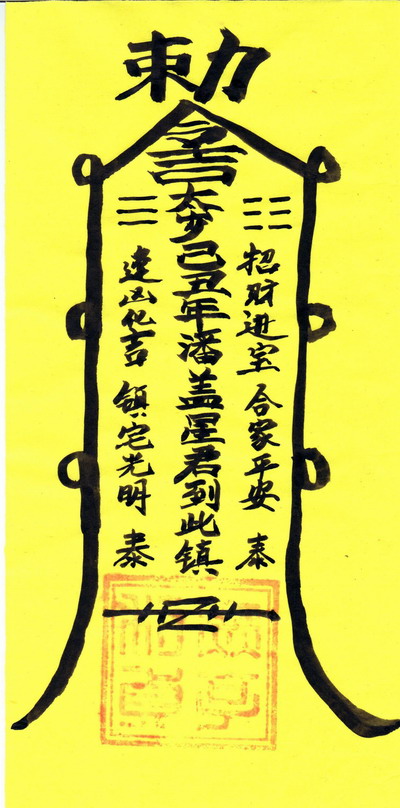 勅
招财進宝 合家平安 泰
太岁己丑年潘盖星君列此镇
逢凶化吉 镇宅光明 泰